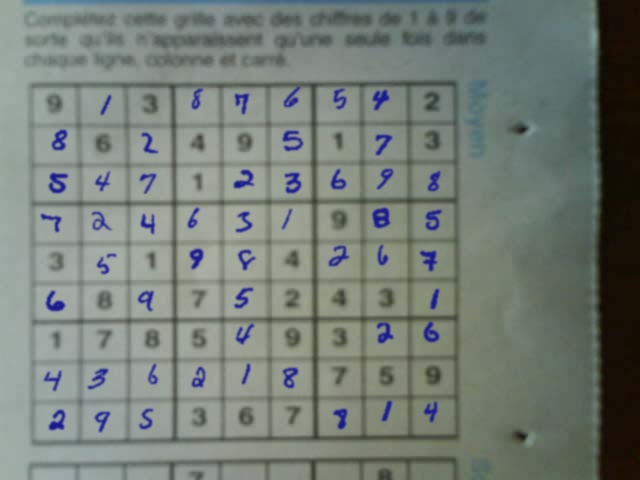 Complétez cette grille avec des chiffres de 1 à 9 de
sorte qu'ils n'apparaissent qu'une seule fois dans
chaque ligne, colonne et carré.
Moyen
9 1 3 8 7 6 5 4 2
8 6 2 4 9 5 1 7 3
5 4 7 1 2 3 6 9 8
7 2 4 6 3 1 9 8 5
3 5 1 9 8 4 2 6 7
6 8 9 7 5 2 4 3 1
1 7 8 5 4 9 3 2 6
4 3 6 2 1 8 7 5 9
2 9 5 3 6 7 8 1 4
7 8